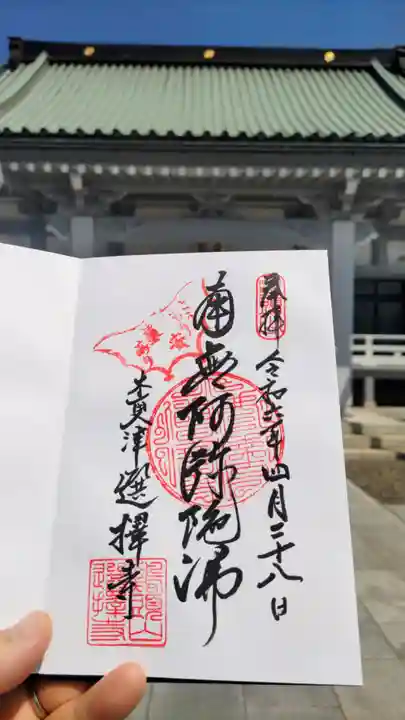 奉拝 令和六年四月二十八日
南無阿弥陀佛
木更津 選擇寺